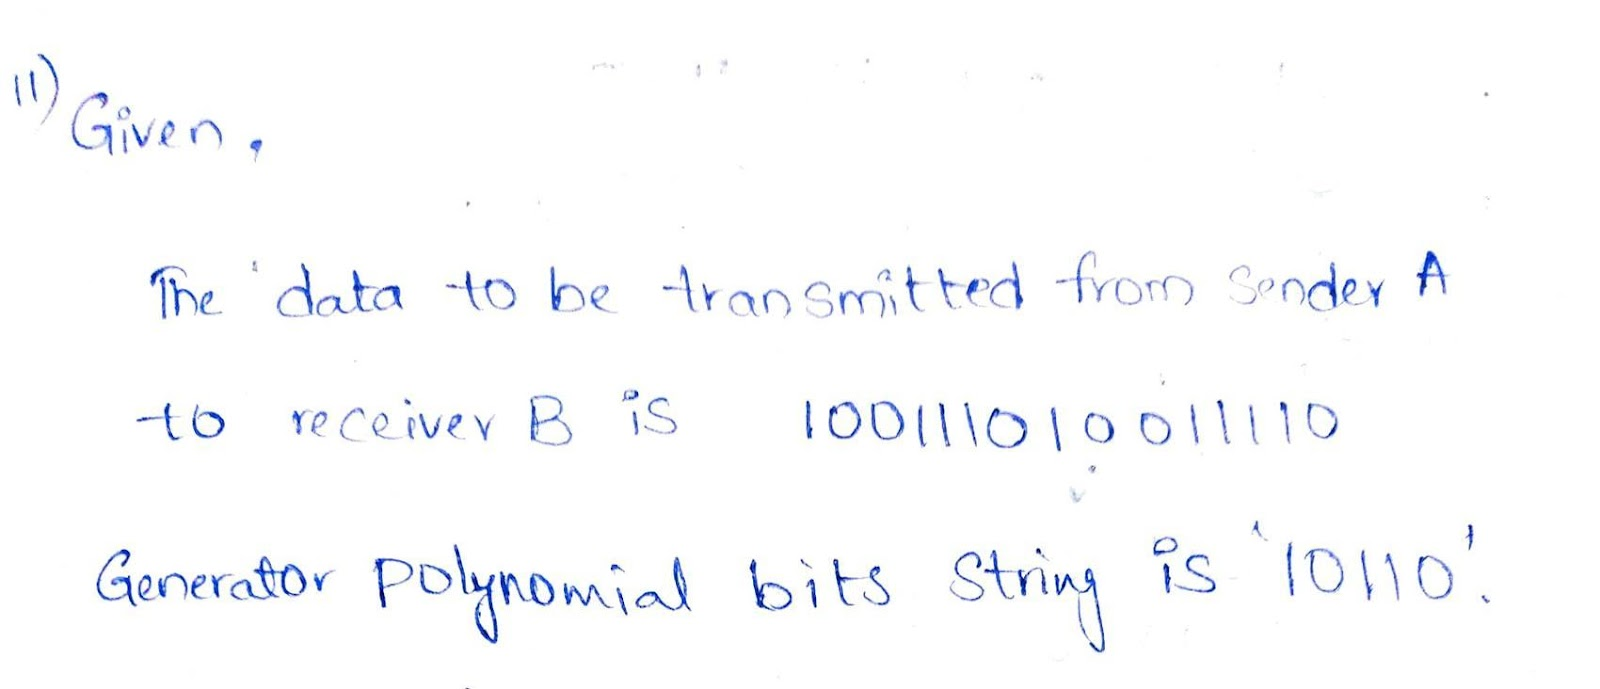 11) Given,
The data to be transmitted from Sender A
to receiver B is 1001110100 11110
Generator polynomial bits String is '10110'.